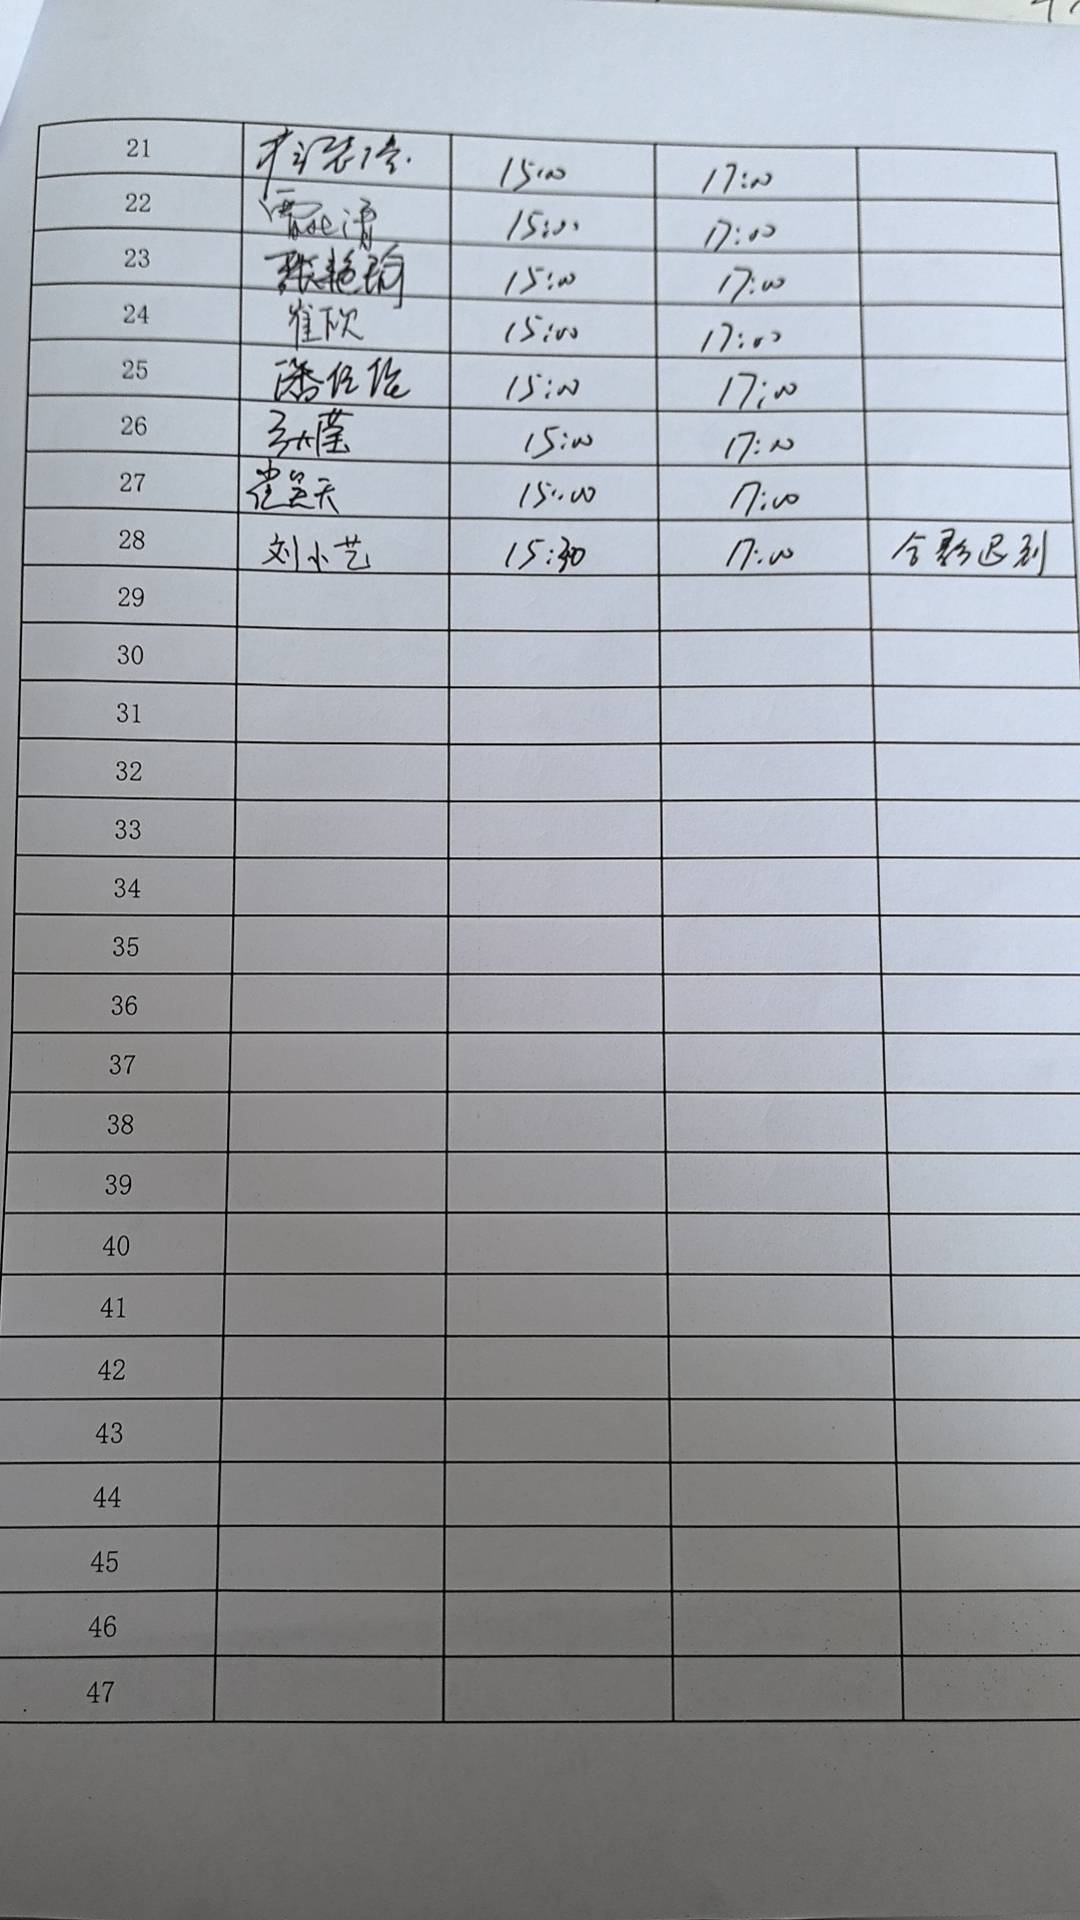 21 15:00 17:00
22 15:00 17:00
23 张艳瑜 15:00 17:00
24 崔欣 15:00 17:00
25 潘 15:00 17:00
26 15:00 17:00
27 天 15:00 17:00
28 刘小艺 15:30 17:00 合影迟到
29
30
31
32
33
34
35
36
37
38
39
40
41
42
43
44
45
46
47